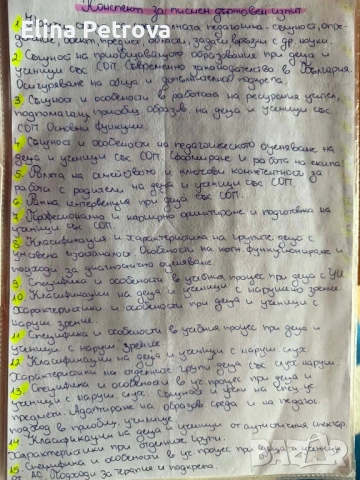 Конспект за писмен държавен изпит
1. същност, опре-
деление, обект, предмет, области, задачи връзки с др. науки.
2. Същност на приобщаващото образование при деца и
ученици със СОП. Съвременно законодателство в България
Осигуряване на обща и допълнителна подкрепа.
3. Същност и особености в работата на ресурсния учител,
подпомагащ приобщ. образов. на деца и ученици със
СОП. Основни функции.
4. Същност и особености на педагогическото оценяване на
деца и ученици със СОП. Сформиране и работа на екипа
5. Ролята на семейството и ключови компетентности за
работа с родители на деца и ученици със СОП.
6. Ранна интервенция при деца със СОП.
7. Професионално и кариерно ориентиране и подготовка на
ученици със СОП.
8. Класификация и характеристика на групите деца с
умствена изостаналост. Особености на психич. функциониране и
подходи за диагностично оценяване.
9. Специфика и особености в учебния процес при деца с УИ
10. Класификации на деца и ученици с нарушено зрение.
Характеристики и особености при деца и ученици с
наруш. зрение.
11. Специфика и особености в учебния процес при деца и
ученици с наруш. зрение
12. Класификации на деца и ученици с наруш. слух
Характеристики на отделните групи деца със слух. наруш.
13. Специфика и особености в уч. процес при деца и
ученици с наруш. слух. Същност и цели на специф. уч.
предмети. Адаптиране на образов. среда и на педагог.
подход в приобщ. училище
14. Класификации на деца и ученици от аутистичния спектър.
Характеристики при отделните групи.
15. Специфика и особености в уч. процес при деца и ученици
от АС. Подходи за терапия и подкрепа.
bazar